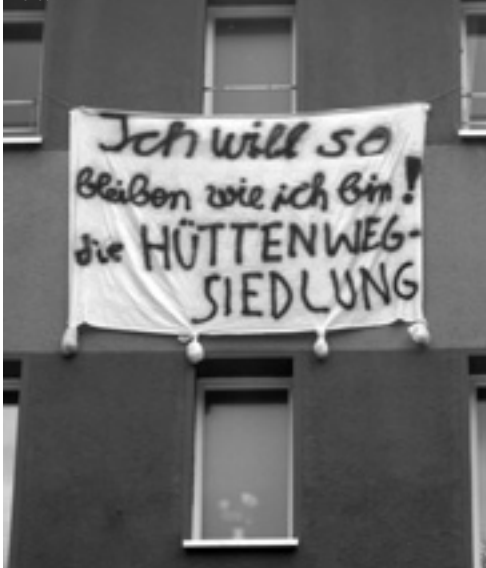 Ich will so
bleiben wie ich bin!
die HÜTTENWEG-
SIEDLUNG